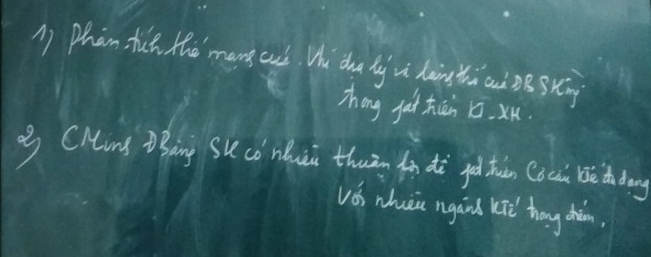 1) Phân tích thế mạng của Vị địa lý và lãng thổ của ĐB SHồng
trong pát triển KT-XH.
2) CMing ĐBằng SH có nhiều thuận lợi để pát triển Cơ cấu Ktế đa dạng
Với nhiều ngàng Ktế trọng điểm.